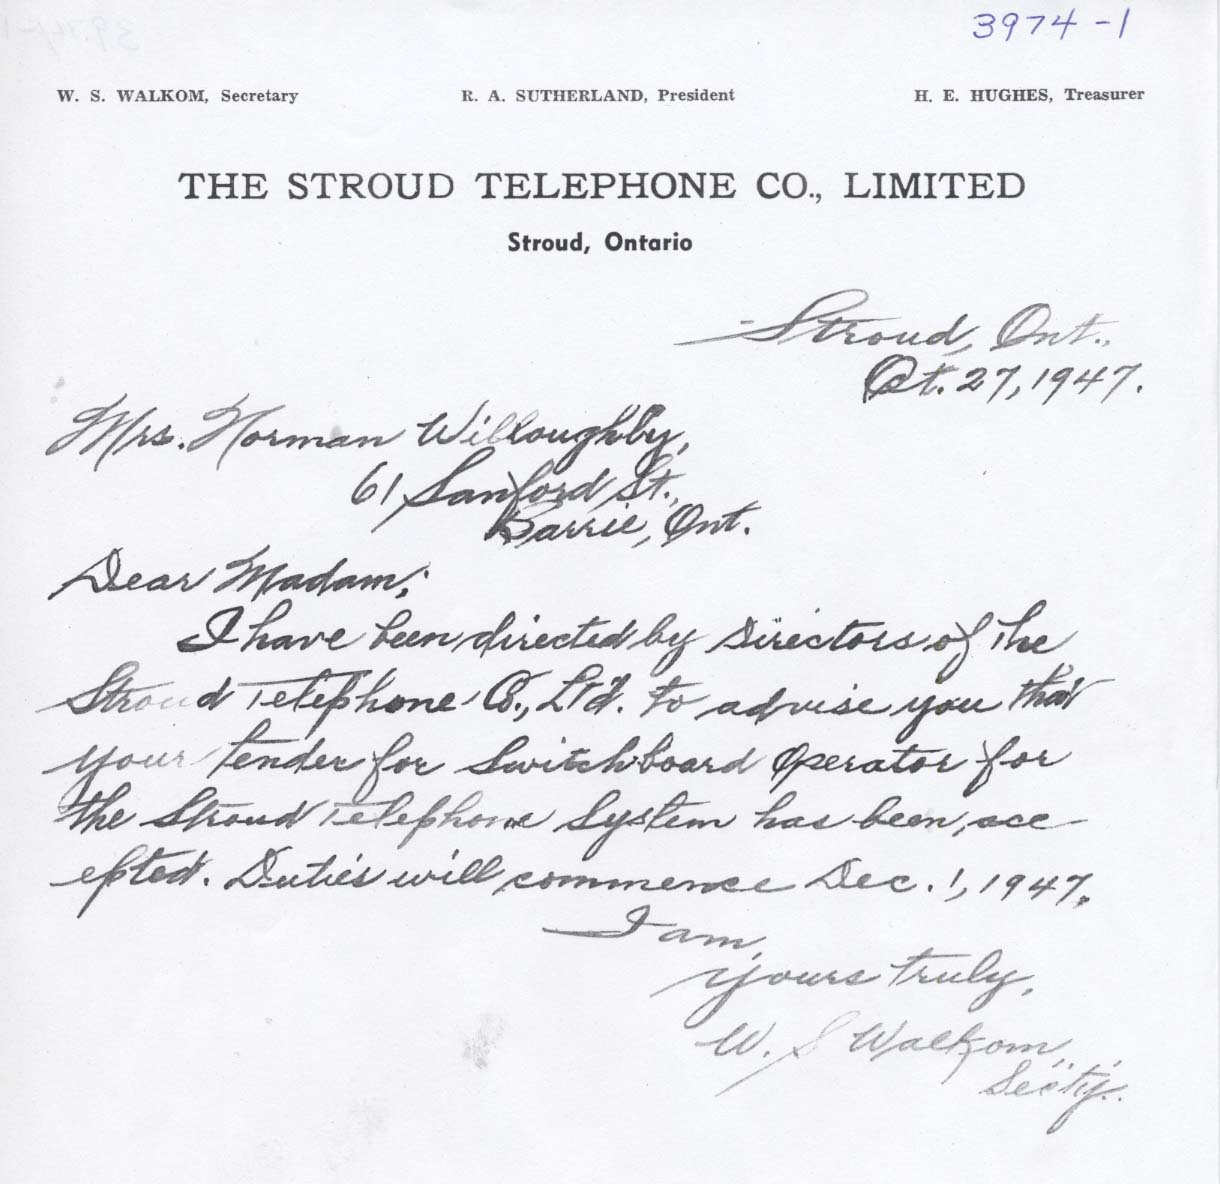 3974-1
W. S. WALKOM, Secretary R. A. SUTHERLAND, President H. E. HUGHES, Treasurer
THE STROUD TELEPHONE CO., LIMITED
Stroud, Ontario
Stroud, Ont.,
Oct. 27, 1947.
Mrs. Norman Willoughby,
61 Sanford St.,
Barrie, Ont.
Dear Madam;
I have been directed by Directors of the
Stroud Telephone Co., Lt'd. to advise you that
your tender for Switch-board Operator for
the Stroud Telephone System has been acc-
epted. Duties will commence Dec. 1, 1947.
I am,
Yours truly,
W. S Walkom,
Sec'ty.